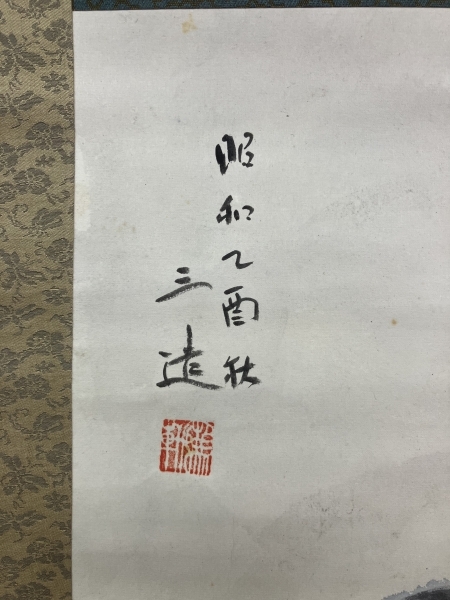 昭和乙酉秋
三造